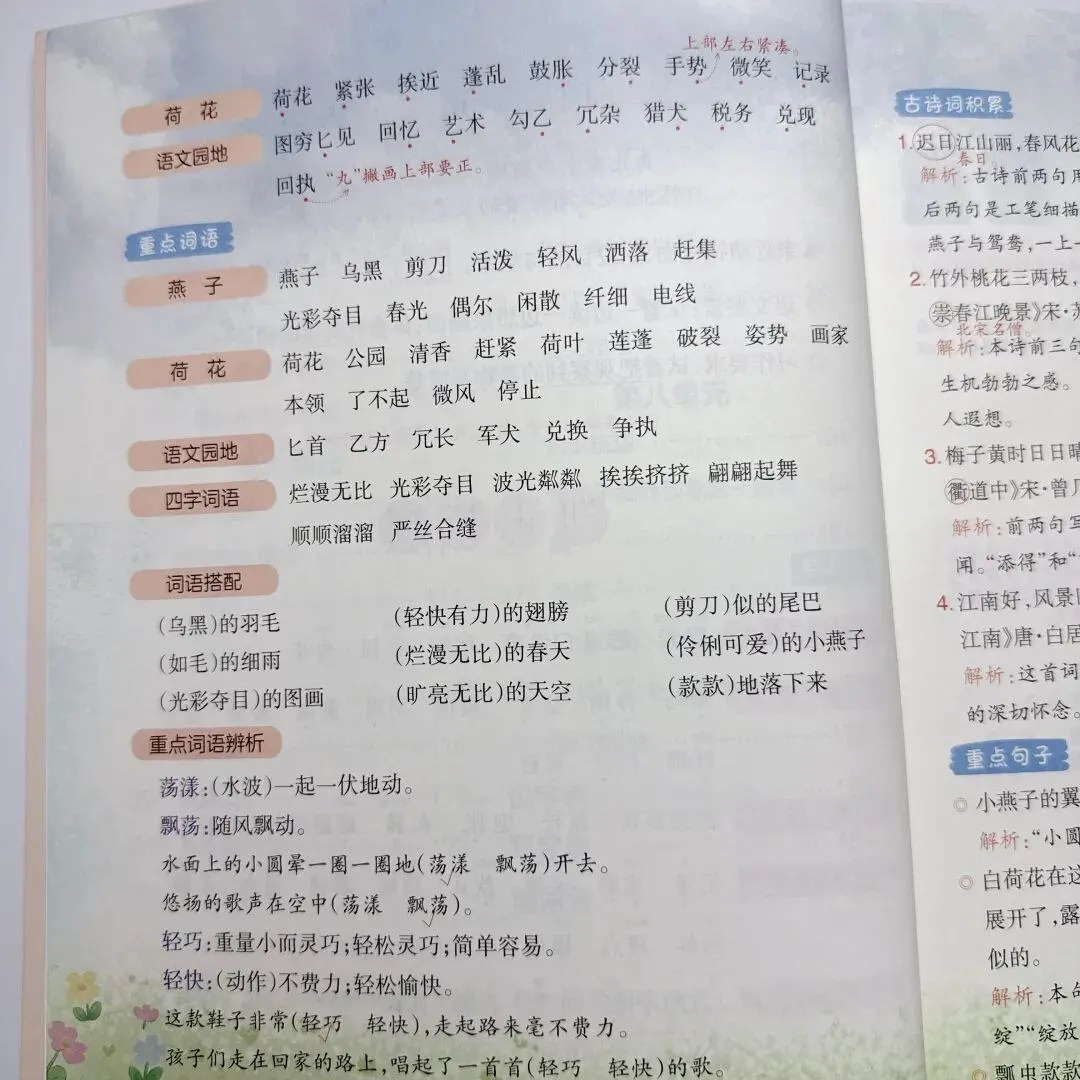 上部左右紧凑。
荷花
荷花 紧张 挨近 蓬乱 鼓胀 分裂 手势 微笑 记录
语文园地
图穷匕见 回忆 艺术 勾乙 冗杂 猎犬 税务 兑现
回执 “丸”撇画上部要正。
重点词语
燕子
燕子 乌黑 剪刀 活泼 轻风 洒落 赶集
光彩夺目 春光 偶尔 闲散 纤细 电线
荷花
荷花 公园 清香 赶紧 荷叶 莲蓬 破裂 姿势 画家
本领 了不起 微风 停止
语文园地
匕首 乙方 冗长 军犬 兑换 争执
四字词语
烂漫无比 光彩夺目 波光粼粼 挨挨挤挤 翩翩起舞
顺顺溜溜 严丝合缝
词语搭配
(乌黑)的羽毛 (轻快有力)的翅膀 (剪刀)似的尾巴
(如毛)的细雨 (烂漫无比)的春天 (伶俐可爱)的小燕子
(光彩夺目)的图画 (旷亮无比)的天空 (款款)地落下来
重点词语辨析
荡漾:(水波)一起一伏地动。
飘荡:随风飘动。
水面上的小圆晕一圈一圈地(荡漾 飘荡)开去。
悠扬的歌声在空中(荡漾 飘荡)。
轻巧:重量小而灵巧;轻松灵巧;简单容易。
轻快:(动作)不费力;轻松愉快。
这款鞋子非常(轻巧 轻快),走起路来毫不费力。
孩子们走在回家的路上,唱起了一首首(轻巧 轻快)的歌。
古诗词积累
1.迟日江山丽,春风花
春日。
解析:古诗前两句用
后两句是工笔细描
燕子与鸳鸯,一上一
2.竹外桃花三两枝,
崇春江晚景》宋·苏
北宋名僧。
解析:本诗前三句
生机勃勃之感。
人遐想。
3.梅子黄时日日晴
衢道中》宋·曾几
解析:前两句写
闻。“添得”和“
4.江南好,风景旧
江南》唐·白居
解析:这首词
的深切怀念。
重点句子
小燕子的翼
解析:“小圆
白荷花在这
展开了,露
似的。
解析:本句
绽”“绽放
瓢虫款款